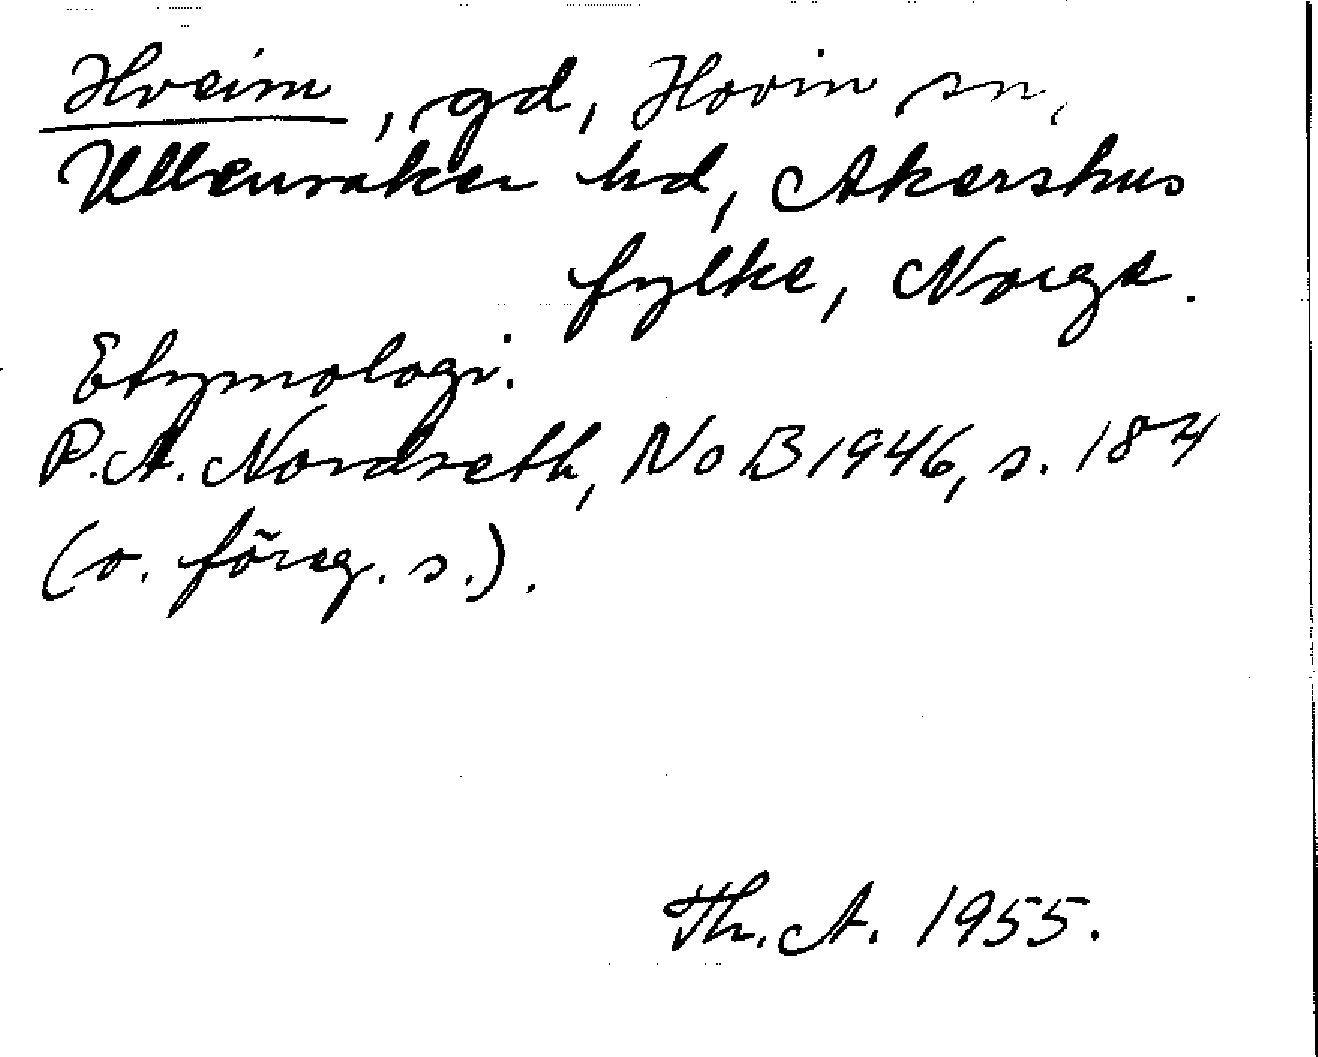 Hveim, gd, Hovin sn,
Ullensaker hd, Akershus
fylke, Norge.
Etymologi:
P.A. Nordseth, NoB 1946, s. 184
(o. föreg. s.).
Th. A. 1955.